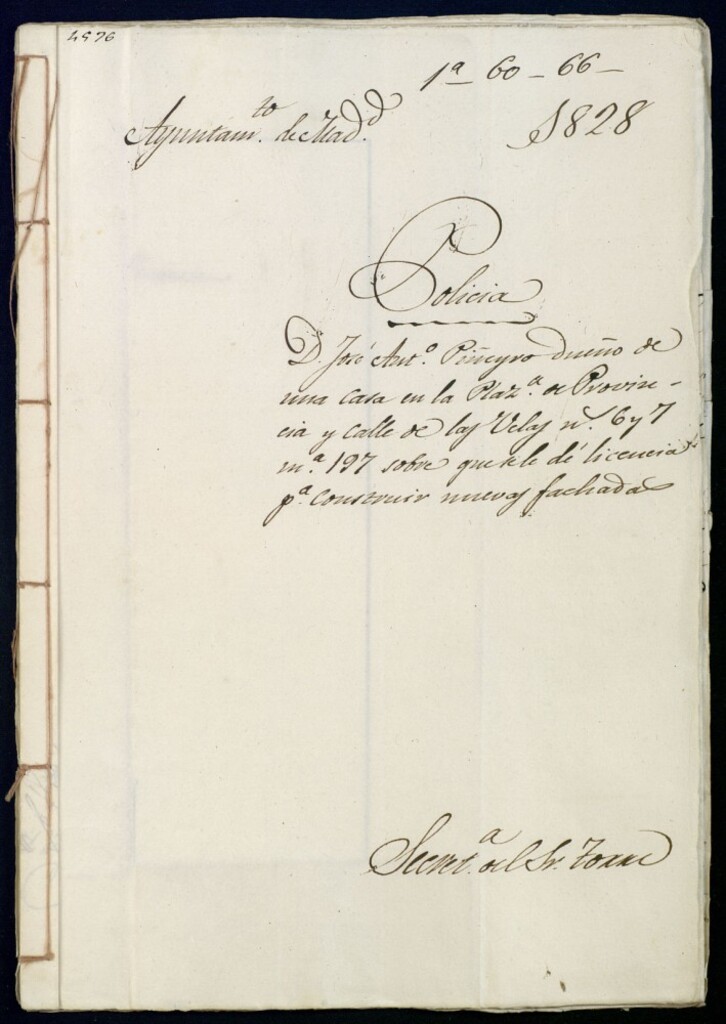 4576
1ª 60 - 66 -
Ayuntam.to de Mad.d
1828
Policia
D. José Ant.º Piñeyro dueño de
una casa en la Plaz.ª de Provin-
cia y calle de las Velas n.s 6 y 7
m.ª 197 sobre que se le dé licencia
p.ª construir nuevas fachadas
Secret.ª del Sr. Torre